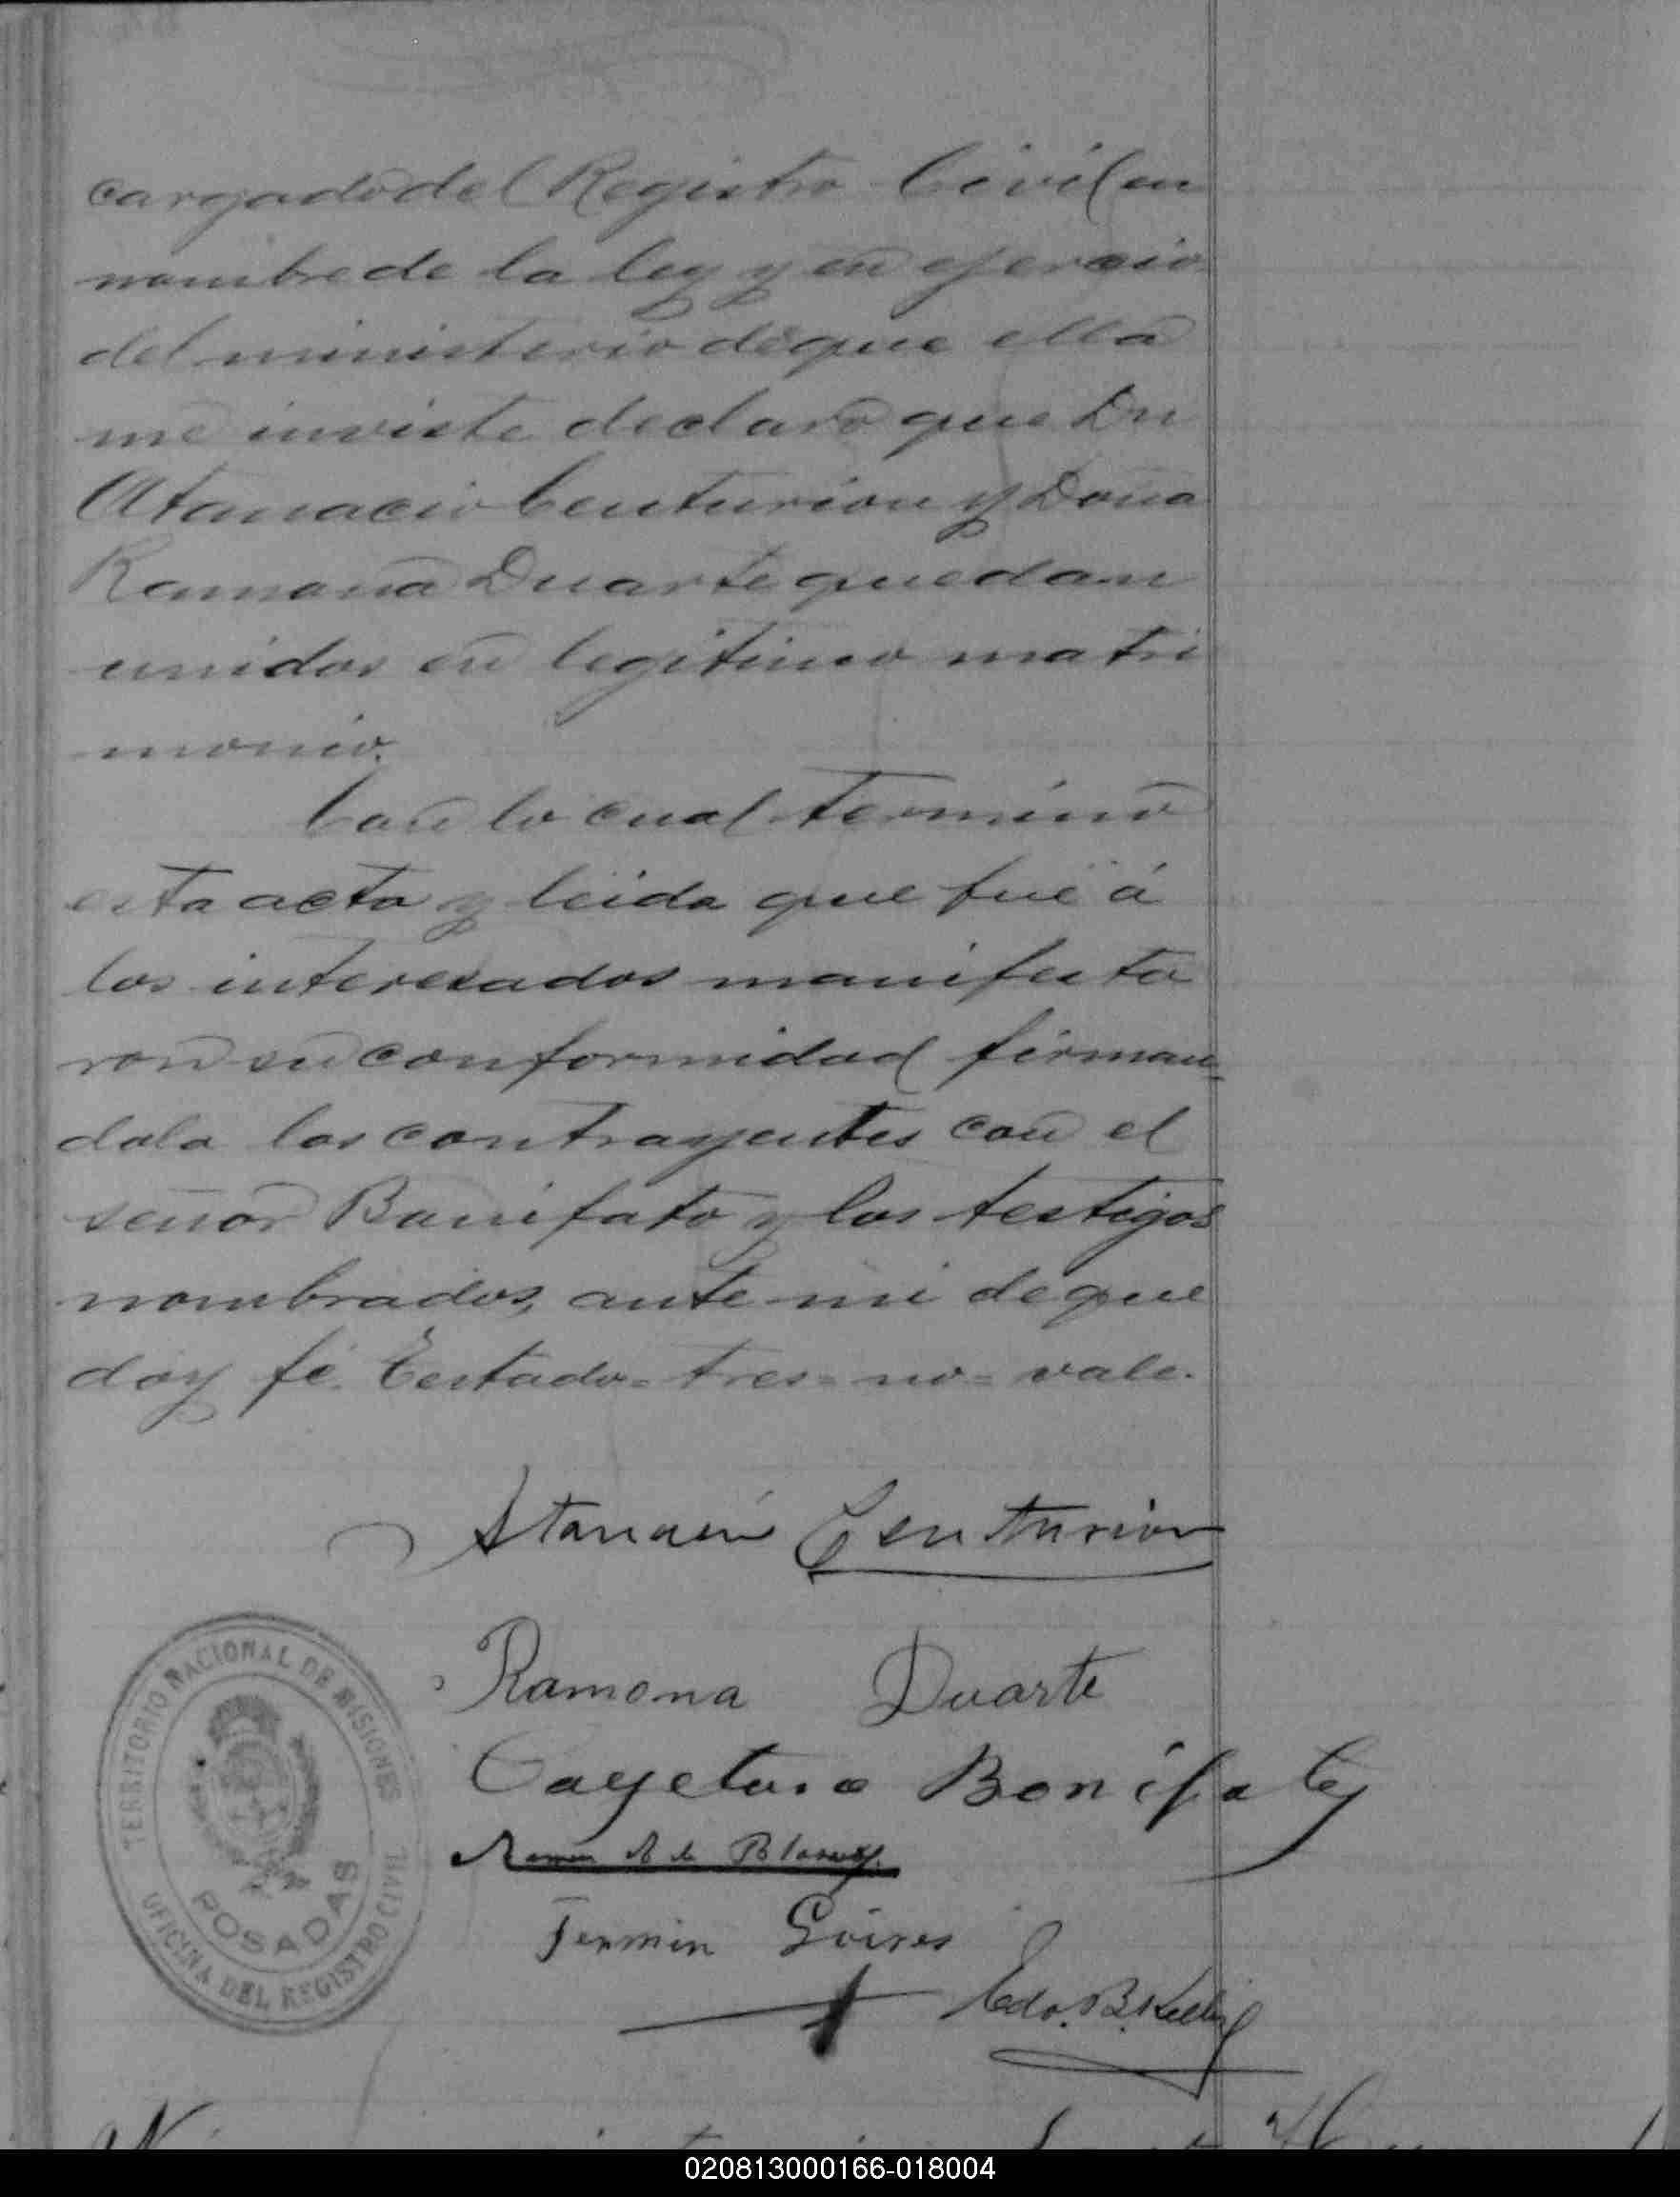 cargado del Registro Civil en
nombre de la ley y en ejercicio
del ministerio de que ella
me inviste declaro que Dn
Atanacio Centurion y Doña
Ramona Duarte quedan
unidos en legitimo matri
monio.
Con lo cual terminó
esta acta y leida que fué á
los interesados manifesta
ron su conformidad firman-
dola los contrayentes con el
señor Bonifato y los testigos
nombrados, ante mi de que
doy fé. Testado=tres=no=vale.
Atanacio Centurion
Ramona Duarte
Cayetano Bonifato
Ramon A de
Fermin
Edo. B.
TERRITORIO NACIONAL DE MISIONES
POSADAS
OFICINA DEL REGISTRO CIVIL
020813000166-018004